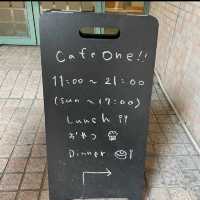 Cafe One!!
11:00〜21:00
(sun〜17:00)
Lunch
おやつ
Dinner